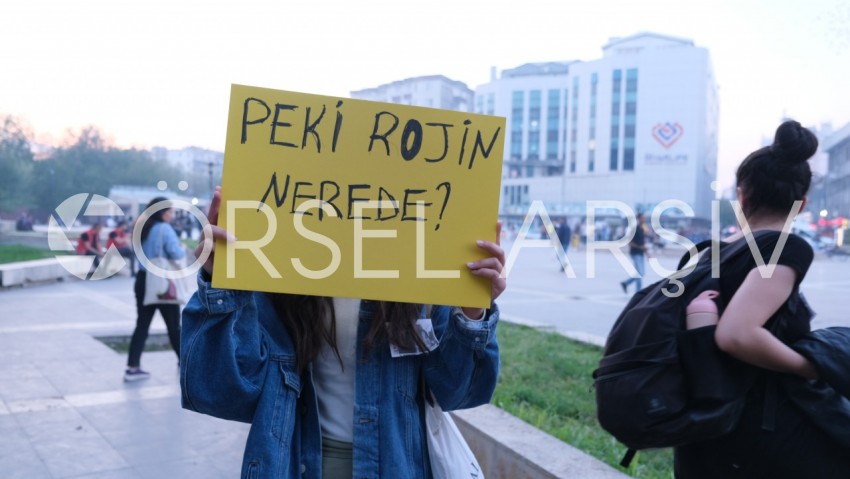 PEKİ ROJİN
NEREDE?
GÖRSEL ARŞİV